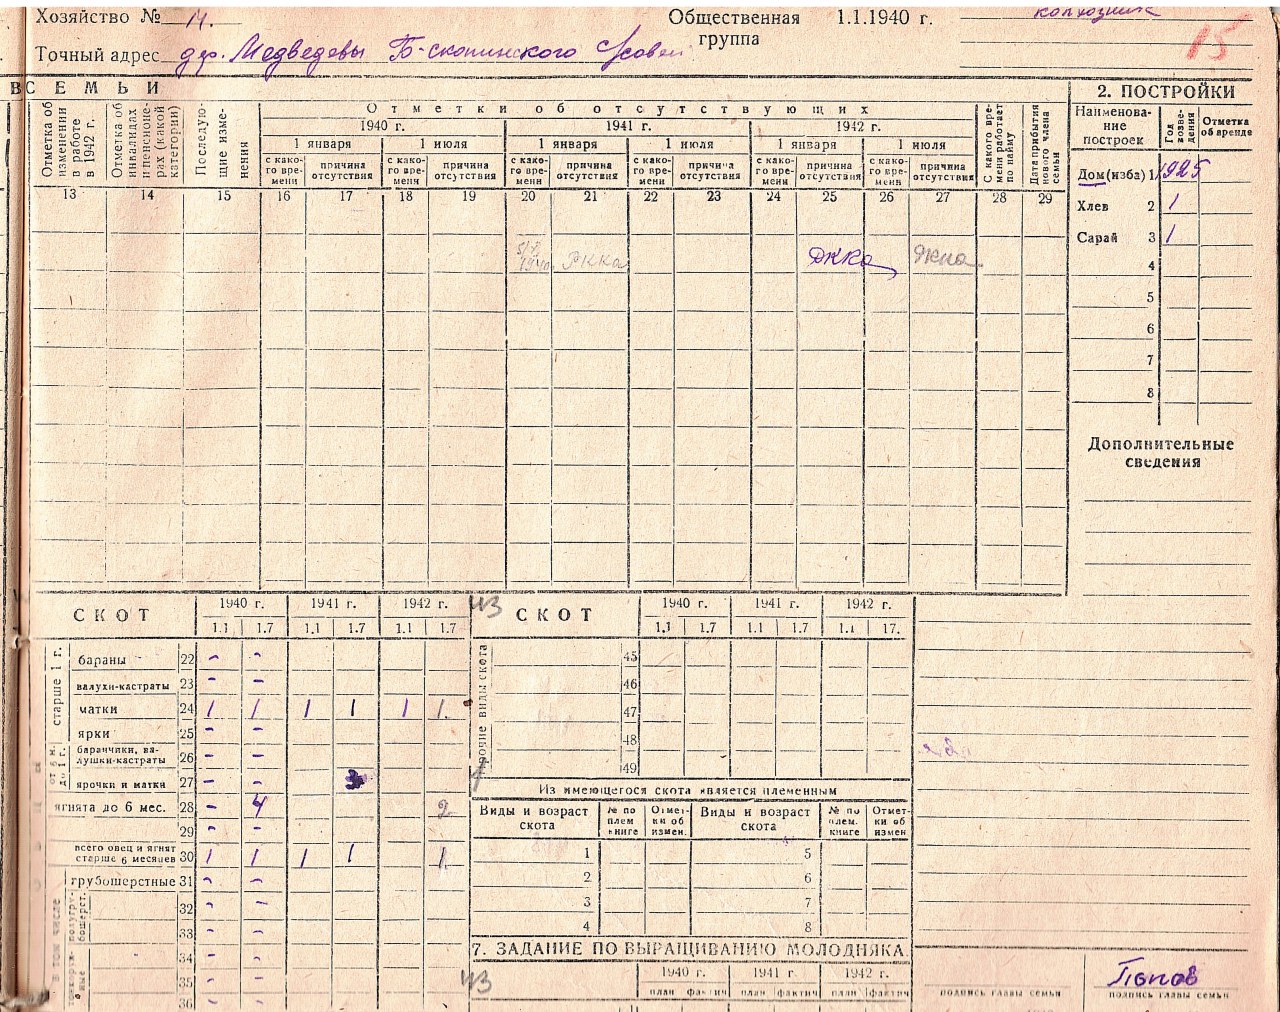 Хозяйство № 14. Общественная группа 1.1.1940 г. колхозник
15
Точный адрес дер. Медведевы Б-скопинского
ВСЕМЬИ
2. ПОСТРОЙКИ
Отметка об изменении в работе в 1942 г.
Отметка об инвалидах и пенсионерах (какой категории)
Последующие изменения
Отметки об отсутствующих
1940 г. 1941 г. 1942 г.
1 января 1 июля 1 января 1 июля 1 января 1 июля
с како-го вре-мени причина отсутствия с како-го вре-мени причина отсутствия с како-го вре-мени причина отсутствия с како-го вре-мени причина отсутствия с како-го вре-мени причина отсутствия с како-го вре-мени причина отсутствия
С какого времени работает по найму
Дата прибытия нового члена семьи
13 14 15 16 17 18 19 20 21 22 23 24 25 26 27 28 29
1940 РККА РККА РККА
Наименова-ние построек Год возве-дения Отметка об аренде
Дом (изба) 1 1925
Хлев 2 1
Сарай 3 1
4
5
6
7
8
Дополнительные
сведения
СКОТ 1940 г. 1941 г. 1942 г.
1.1 1.7 1.1 1.7 1.1 1.7
старше 1 г.
бараны 22 - -
валухи-кастраты 23 - -
матки 24 1 1 1 1 1 1
ярки 25 - -
от 6 м. до 1 г.
баранчики, ва-лушки-кастраты 26 - -
ярочки и матки 27 - - 3
ягнята до 6 мес. 28 - 4 2
29 - -
всего овец и ягнят старше 6 месяцев 30 1 1 1 1 1
в том числе
грубошерстные 31 - -
полугру-бошерст.
32 - -
33 - -
34 - -
35 - -
36 - -
43
СКОТ 1940 г. 1941 г. 1942 г.
1.1 1.7 1.1 1.7 1.1 17.
прочие виды скота
45
46
47
48
49
Из имеющегося скота является племенным
Виды и возраст скота № по плем книге Отмет-ки об измен. Виды и возраст скота № по плем. книге Отмет-ки об измен
1 5
2 6
3 7
4 8
7. ЗАДАНИЕ ПО ВЫРАЩИВАНИЮ МОЛОДНЯКА
43
1940 г. 1941 г. 1942 г.
план фактич план фактич план фактич
Попов
подпись главы семьи подпись главы семьи